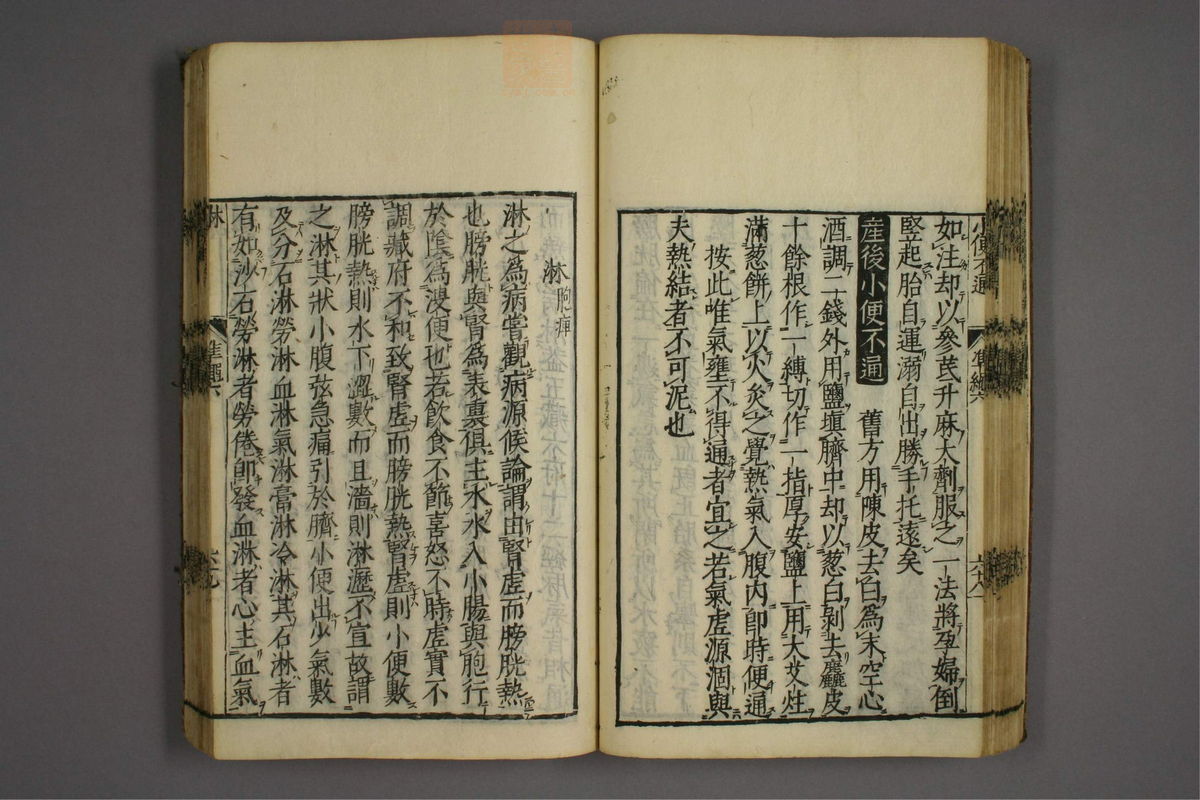 小便不通
準繩六
六十八
如注却以參芪升麻大劑服之一法將孕婦倒
竪起胎自運溺自出勝手托遠矣
産後小便不通 舊方用陳皮去白爲末空心
酒調二錢外用鹽填臍中却以葱白剝去麤皮
十餘根作一縛切作一指厚安鹽上用大艾炷
滿葱餅上以火灸之覺熱氣入腹内卽時便通
按此唯氣壅不得通者宜之若氣虛源涸與
夫熱結者不可泥也
淋 胞痺
淋之爲病嘗觀病源候論謂由腎虛而膀胱熱
也膀胱與腎爲表裏俱主水水入小腸與胞行
於陰爲溲便也若飲食不節喜怒不時虛實不
調藏府不和致腎虛而膀胱熱腎虛則小便數
膀胱熱則水下澀數而且濇則淋瀝不宣故謂
之淋其狀小腹弦急痛引於臍小便出少氣數
及分石淋勞淋血淋氣淋膏淋冷淋其石淋者
有如沙石勞淋者勞倦卽發血淋者心主血氣
淋
準繩六
六十九